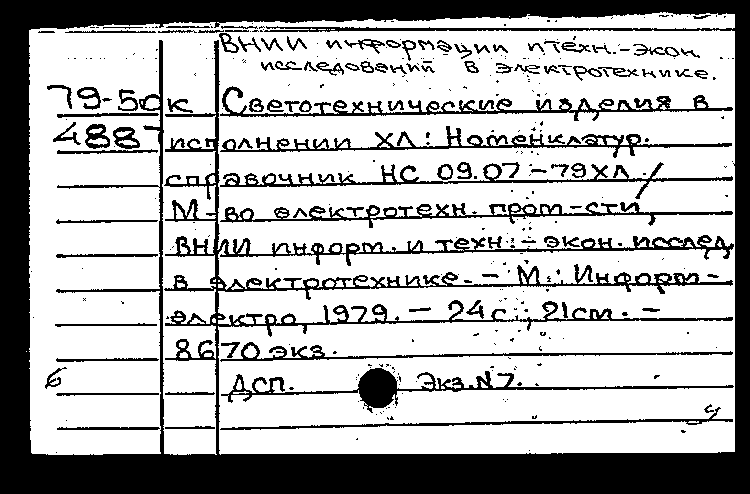 ВНИИ информации и техн.-экон.
исследований в электротехнике.
79-50к Светотехнические изделия в
4887 исполнении ХЛ: Номенклатур.
справочник НС 09.07-79ХЛ /
М-во электротехн. пром-сти,
ВНИИ информ. и техн.-экон. исслед.
в электротехнике. - М.: Информ-
электро, 1979. - 24 с.; 21см. -
8670 экз.
б ДСП. Экз.N7.